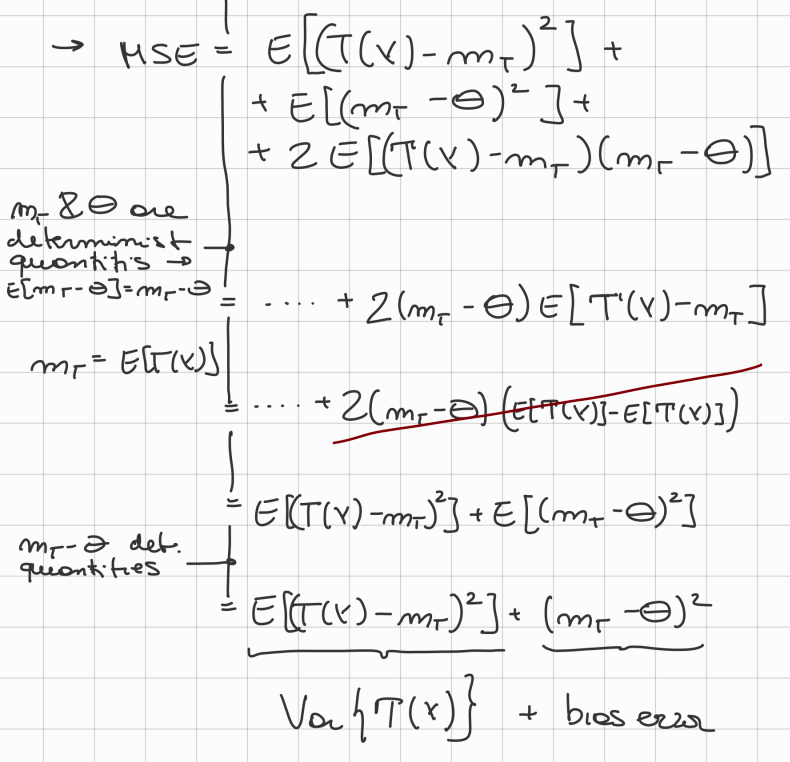 → MSE = E[(T(X)-m_T)²] +
+ E[(m_T - Θ)²] +
+ 2 E[(T(X)-m_T)(m_T-Θ)]
m_T & Θ are
determinist
quantitis →
E[m_T-Θ]=m_T-Θ
= ···· + 2(m_T - Θ) E[T(X)-m_T]
m_T = E[T(X)]
= ···· + 2(m_T-Θ)(E[T(X)]-E[T(X)])
= E[(T(X)-m_T)²] + E[(m_T-Θ)²]
m_T-Θ det.
quantities
= E[(T(X)-m_T)²] + (m_T-Θ)²
Var{T(X)} + bias error